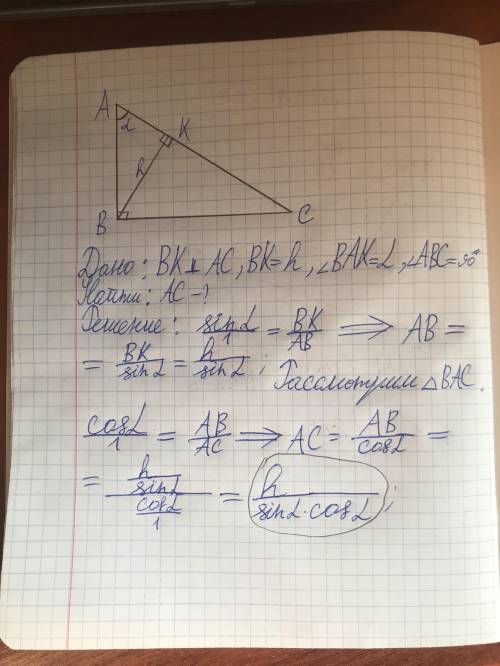 A
α
K
h
B
C
Дано: BK ⊥ AC, BK=h, ∠BAK=α, ∠ABC=90°
Найти: AC-?
Решение: sinα/1 = BK/AB ⟹ AB =
= BK/sinα = h/sinα; Рассмотрим △BAC.
cosα/1 = AB/AC ⟹ AC = AB/cosα =
= (h/sinα)/(cosα/1) = h/(sinα·cosα);